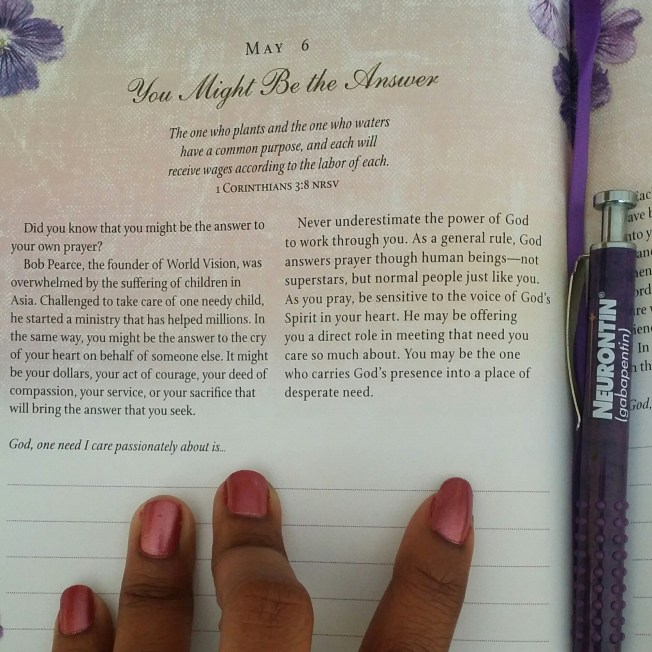 MAY 6
You Might Be the Answer
The one who plants and the one who waters
have a common purpose, and each will
receive wages according to the labor of each.
1 CORINTHIANS 3:8 NRSV
Did you know that you might be the answer to
your own prayer?
Bob Pearce, the founder of World Vision, was
overwhelmed by the suffering of children in
Asia. Challenged to take care of one needy child,
he started a ministry that has helped millions. In
the same way, you might be the answer to the cry
of your heart on behalf of someone else. It might
be your dollars, your act of courage, your deed of
compassion, your service, or your sacrifice that
will bring the answer that you seek.
God, one need I care passionately about is...
Never underestimate the power of God
to work through you. As a general rule, God
answers prayer though human beings—not
superstars, but normal people just like you.
As you pray, be sensitive to the voice of God's
Spirit in your heart. He may be offering
you a direct role in meeting that need you
care so much about. You may be the one
who carries God's presence into a place of
desperate need.
NEURONTIN®
(gabapentin)
In
God,